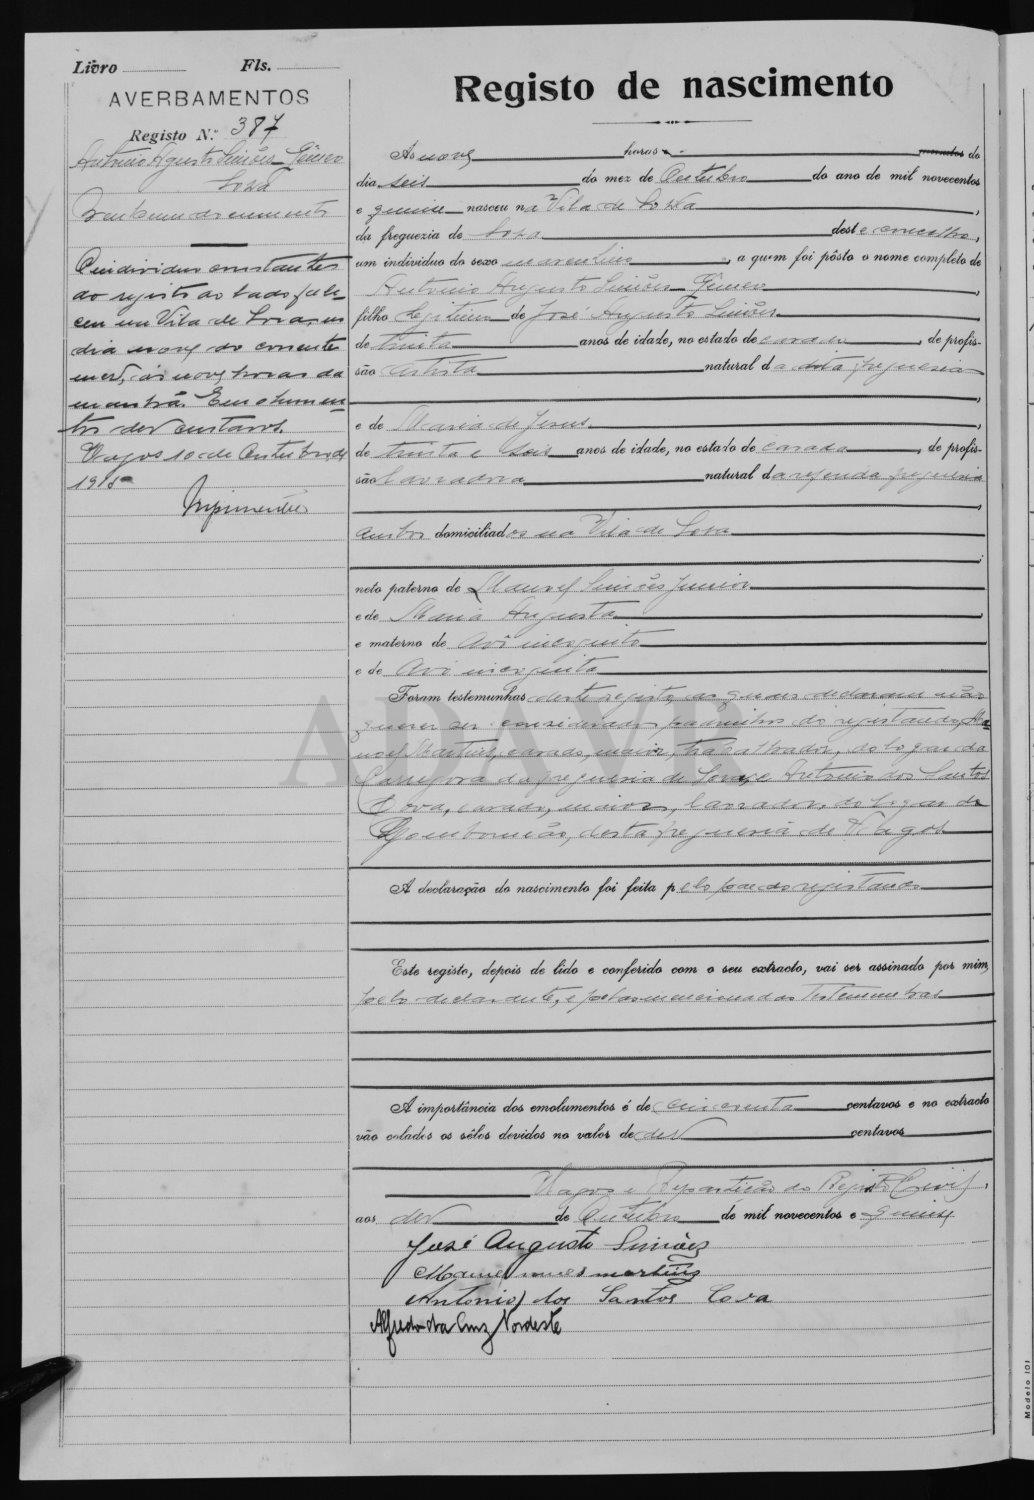 Livro Fls.
AVERBAMENTOS
Registo N.º 387
Antonio Agusto Simões Gênero
Soza
O individuo constante
do registo ao lado fale-
ceu na Vila de Soza, no
dia nove do corrente
mez, ás nove horas da
manhã. Emolumen-
tos dez centavos.
Vagos 10 de Outubro de
1915
Registo de nascimento
Ás nove horas minutos do
dia seis do mez de Outubro do ano de mil novecentos
e quinze nasceu na Vila de Soza,
da freguezia de Soza deste concelho,
um individuo do sexo masculino, a quem foi pôsto o nome completo de
Antonio Augusto Simões Gênero,
filho legitimo de José Augusto Simões
de trinta anos de idade, no estado de casado, de profis-
são artista natural da dita freguesia
,
e de Maria de Jesus,
de trinta e seis anos de idade, no estado de casada, de profis-
são lavradora natural da referida freguesia
,
ambos domiciliados na Vila de Soza
;
neto paterno de Manuel Simões Junior
e de Maria Augusta,
e materno de Avô incognito
e de Avó incognita
Foram testemunhas deste registo, as quaes declararam não
querer ser consideradas padrinhos do registando, Ma-
noel Martins, casado, maior, trabalhador, do logar da
Carregosa da freguesia de Soza, e Antonio dos Santos
Cova, casado, maior, lavrador, do logar de
desta freguesia de Vagos
A declaração do nascimento foi feita pelo pae do registando
Este registo, depois de lido e conferido com o seu extracto, vai ser assinado por mim,
pelo declarante, e pelas mencionadas testemunhas
A importância dos emolumentos é de cincoenta centavos e no extracto
vão colados os sêlos devidos no valor de dez centavos
Vagos e Repartição do Registo Civil,
aos dez de Outubro de mil novecentos e quinze
José Augusto Simões
Manuel nunes martins
Antonio dos Santos Cova
Alfredo da Cruz Nordeste
ADAVR
Modelo 101